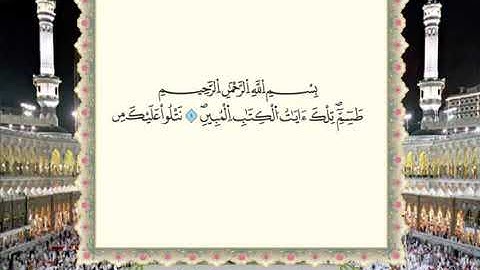 بِسْمِ اِ۬للَّهِ اِ۬لرَّحْمَٰنِ اِ۬لرَّحِيمِ
طَسِٓمِّٓۖ تِلْكَ ءَايَٰتُ اُ۬لْكِتَٰبِ اِ۬لْمُبِينِۖ ١ نَتْلُواْ عَلَيْكَ مِن